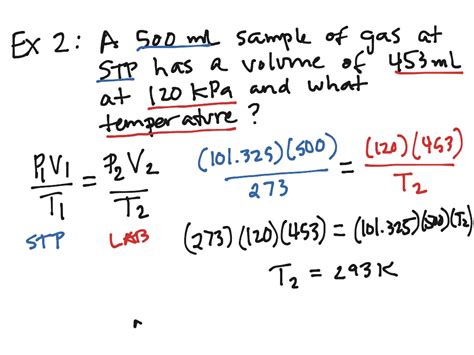 Ex 2: A 500 mL sample of gas at
STP has a volume of 453mL
at 120 kPa and what
temperature?
P₁V₁/T₁ = P₂V₂/T₂
STP LAB
(101.325)(500)/273 = (120)(453)/T₂
(273)(120)(453) = (101.325)(500)(T₂)
T₂ = 293K